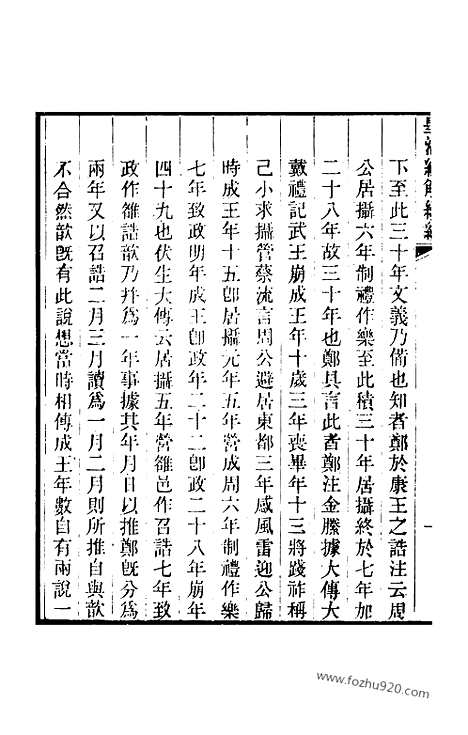 皇清經解續編
下至此三十年文義乃備也知者鄭於康王之誥注云周
公居攝六年制禮作樂至此積三十年居攝終於七年加
二十八年故三十年也鄭具言此者鄭注金縢據大傳大
戴禮記武王崩成王年十歲三年喪畢年十三將踐祚稱
己小求攝管蔡流言周公避居東都三年感風雷迎公歸
時成王年十五卽居攝元年五年營成周六年制禮作樂
七年致政明年成王卽政年二十二卽政二十八年崩年
四十九也伏生大傳云居攝五年營雒邑作召誥七年致
政作雒誥歆乃幷爲一年事據其年月日以推鄭旣分爲
兩年又以召誥二月三月讀爲一月二月則所推自與歆
不合然歆旣有此說想當時相傳成王年數自有兩說一
www.fozhu920.com